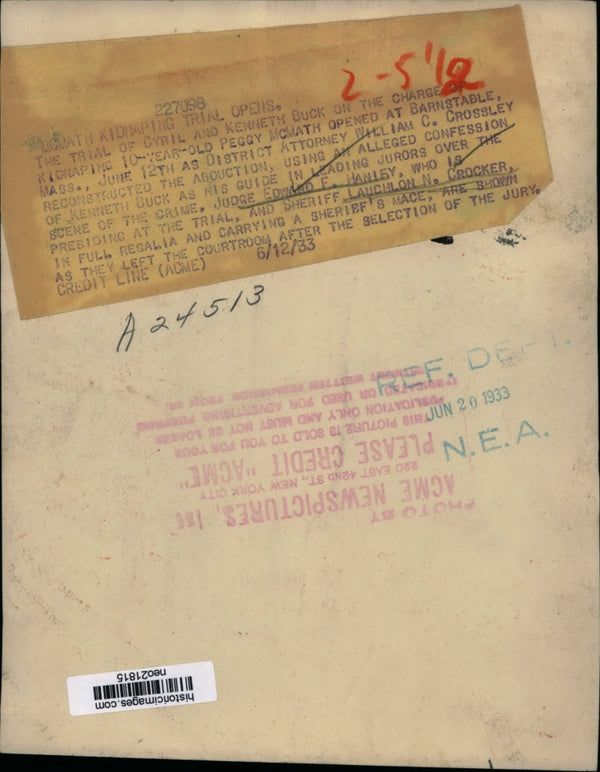 2-5 1/2
227098
MCMATH KIDNAPING TRIAL OPENS.
THE TRIAL OF CYRIL AND KENNETH BUCK ON THE CHARGE OF
KIDNAPING 10-YEAR-OLD PEGGY MCMATH OPENED AT BARNSTABLE,
MASS., JUNE 12TH AS DISTRICT ATTORNEY WILLIAM C. CROSSLEY
RECONSTRUCTED THE ABDUCTION, USING AN ALLEGED CONFESSION
OF KENNETH BUCK AS HIS GUIDE IN LEADING JURORS OVER THE
SCENE OF THE CRIME. JUDGE EDWARD F. HANLEY, WHO IS
PRESIDING AT THE TRIAL, AND SHERIFF LAUCHLON N. CROCKER,
IN FULL REGALIA AND CARRYING A SHERIFF'S MACE, ARE SHOWN
AS THEY LEFT THE COURTROOM AFTER THE SELECTION OF THE JURY.
CREDIT LINE (ACME) 6/12/33
A 24513
REF. DEPT.
JUN 20 1933
N.E.A.
PHOTO BY
ACME NEWSPICTURES, INC
220 EAST 42ND ST., NEW YORK CITY
PLEASE CREDIT "ACME"
THIS PICTURE IS SOLD TO YOU FOR YOUR
PUBLICATION ONLY AND MUST NOT BE LOANED
OR USED FOR ADVERTISING PURPOSES
WITHOUT WRITTEN PERMISSION FROM US
historicimages.com
neo21815